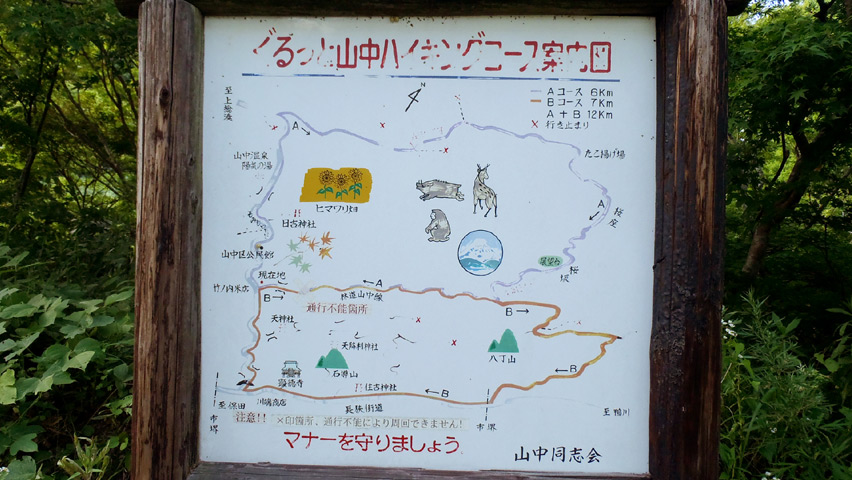 ぐるっと山中ハイキングコース案内図
N
Aコース 6Km
Bコース 7Km
A+B 12Km
× 行き止まり
至上総湊
A
山中温泉
陽美の湯
たこ揚げ場
ヒマワリ畑
日古神社
A
桜
展望台
桜坂
山中区公民館
現在地
竹ノ内米店
A
林道山中線
B
通行不能箇所
B
天神社
八丁山
顕徳寺
B
住古神社
B
川端商店
長狭街道
至保田
至鴨川
市境
市境
注意!!
×印箇所、通行不能により周回できません!
マナーを守りましょう
山中同志会